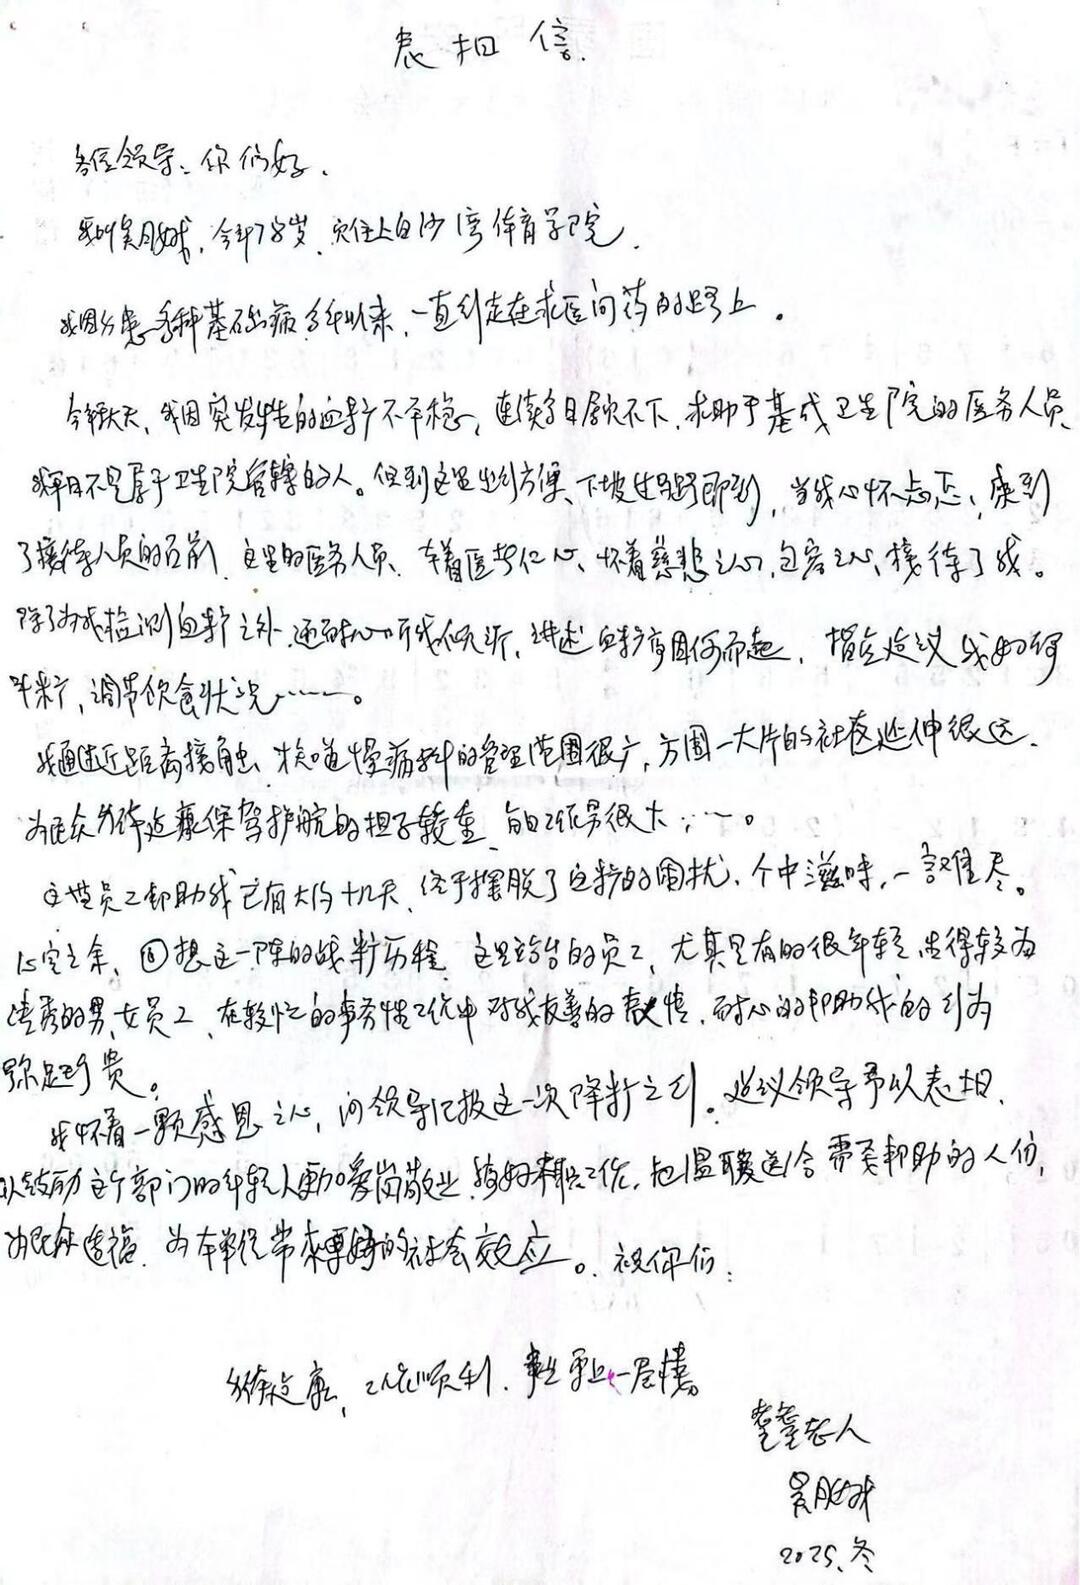 表扬信
各位领导：你们好．
我叫吴月娥，今年78岁．家住上白沙湾体育学院．
我因身患多种基础病多年以来，一直行走在求医问药的路上。
今年大天，我因突发性的血压不平稳，连续多日居高不下．求助于基成卫生院的医务人员．
我本不是属于卫生院管辖的人。但到这里出行方便、下坡过马路即到，当我心怀忐忑，来到
了接待人员的面前．这里的医务人员、本着医者仁心、怀着慈悲之心，包容之心，接待了我。
除了为我检测血压之外．还耐心听我倾诉，讲述血压高因何而起，指点建议我如何
降压，调节饮食状况……。
我通过近距离接触．才知道慢病科的管理范围很广，方圆一大片的社区延伸很远．
为民众身体健康保驾护航的担子较重、的工作量很大，……。
这里员工帮助我已有大约十几天．终于摆脱了血压的困扰．个中滋味，一言难尽。
心定之余，回想这一阵的战斗历程．这里站台的员工，尤其是有的很年轻，出得较为
优秀的男、女员工．在较忙的事务性工作中对我友善的表情．耐心的帮助我的行为
弥足可贵。
我怀着一颗感恩之心，向领导汇报这一次降压之行。建议领导予以表扬．
以鼓励这个部门的年轻人更加爱岗敬业．做好本职工作．把温暖送给需要帮助的人们，
为民众造福．为本单位带来更好的社会效应。祝你们：
身体健康，工作顺利．事业更上一层楼。
耄耋老人
吴月娥
2025.冬